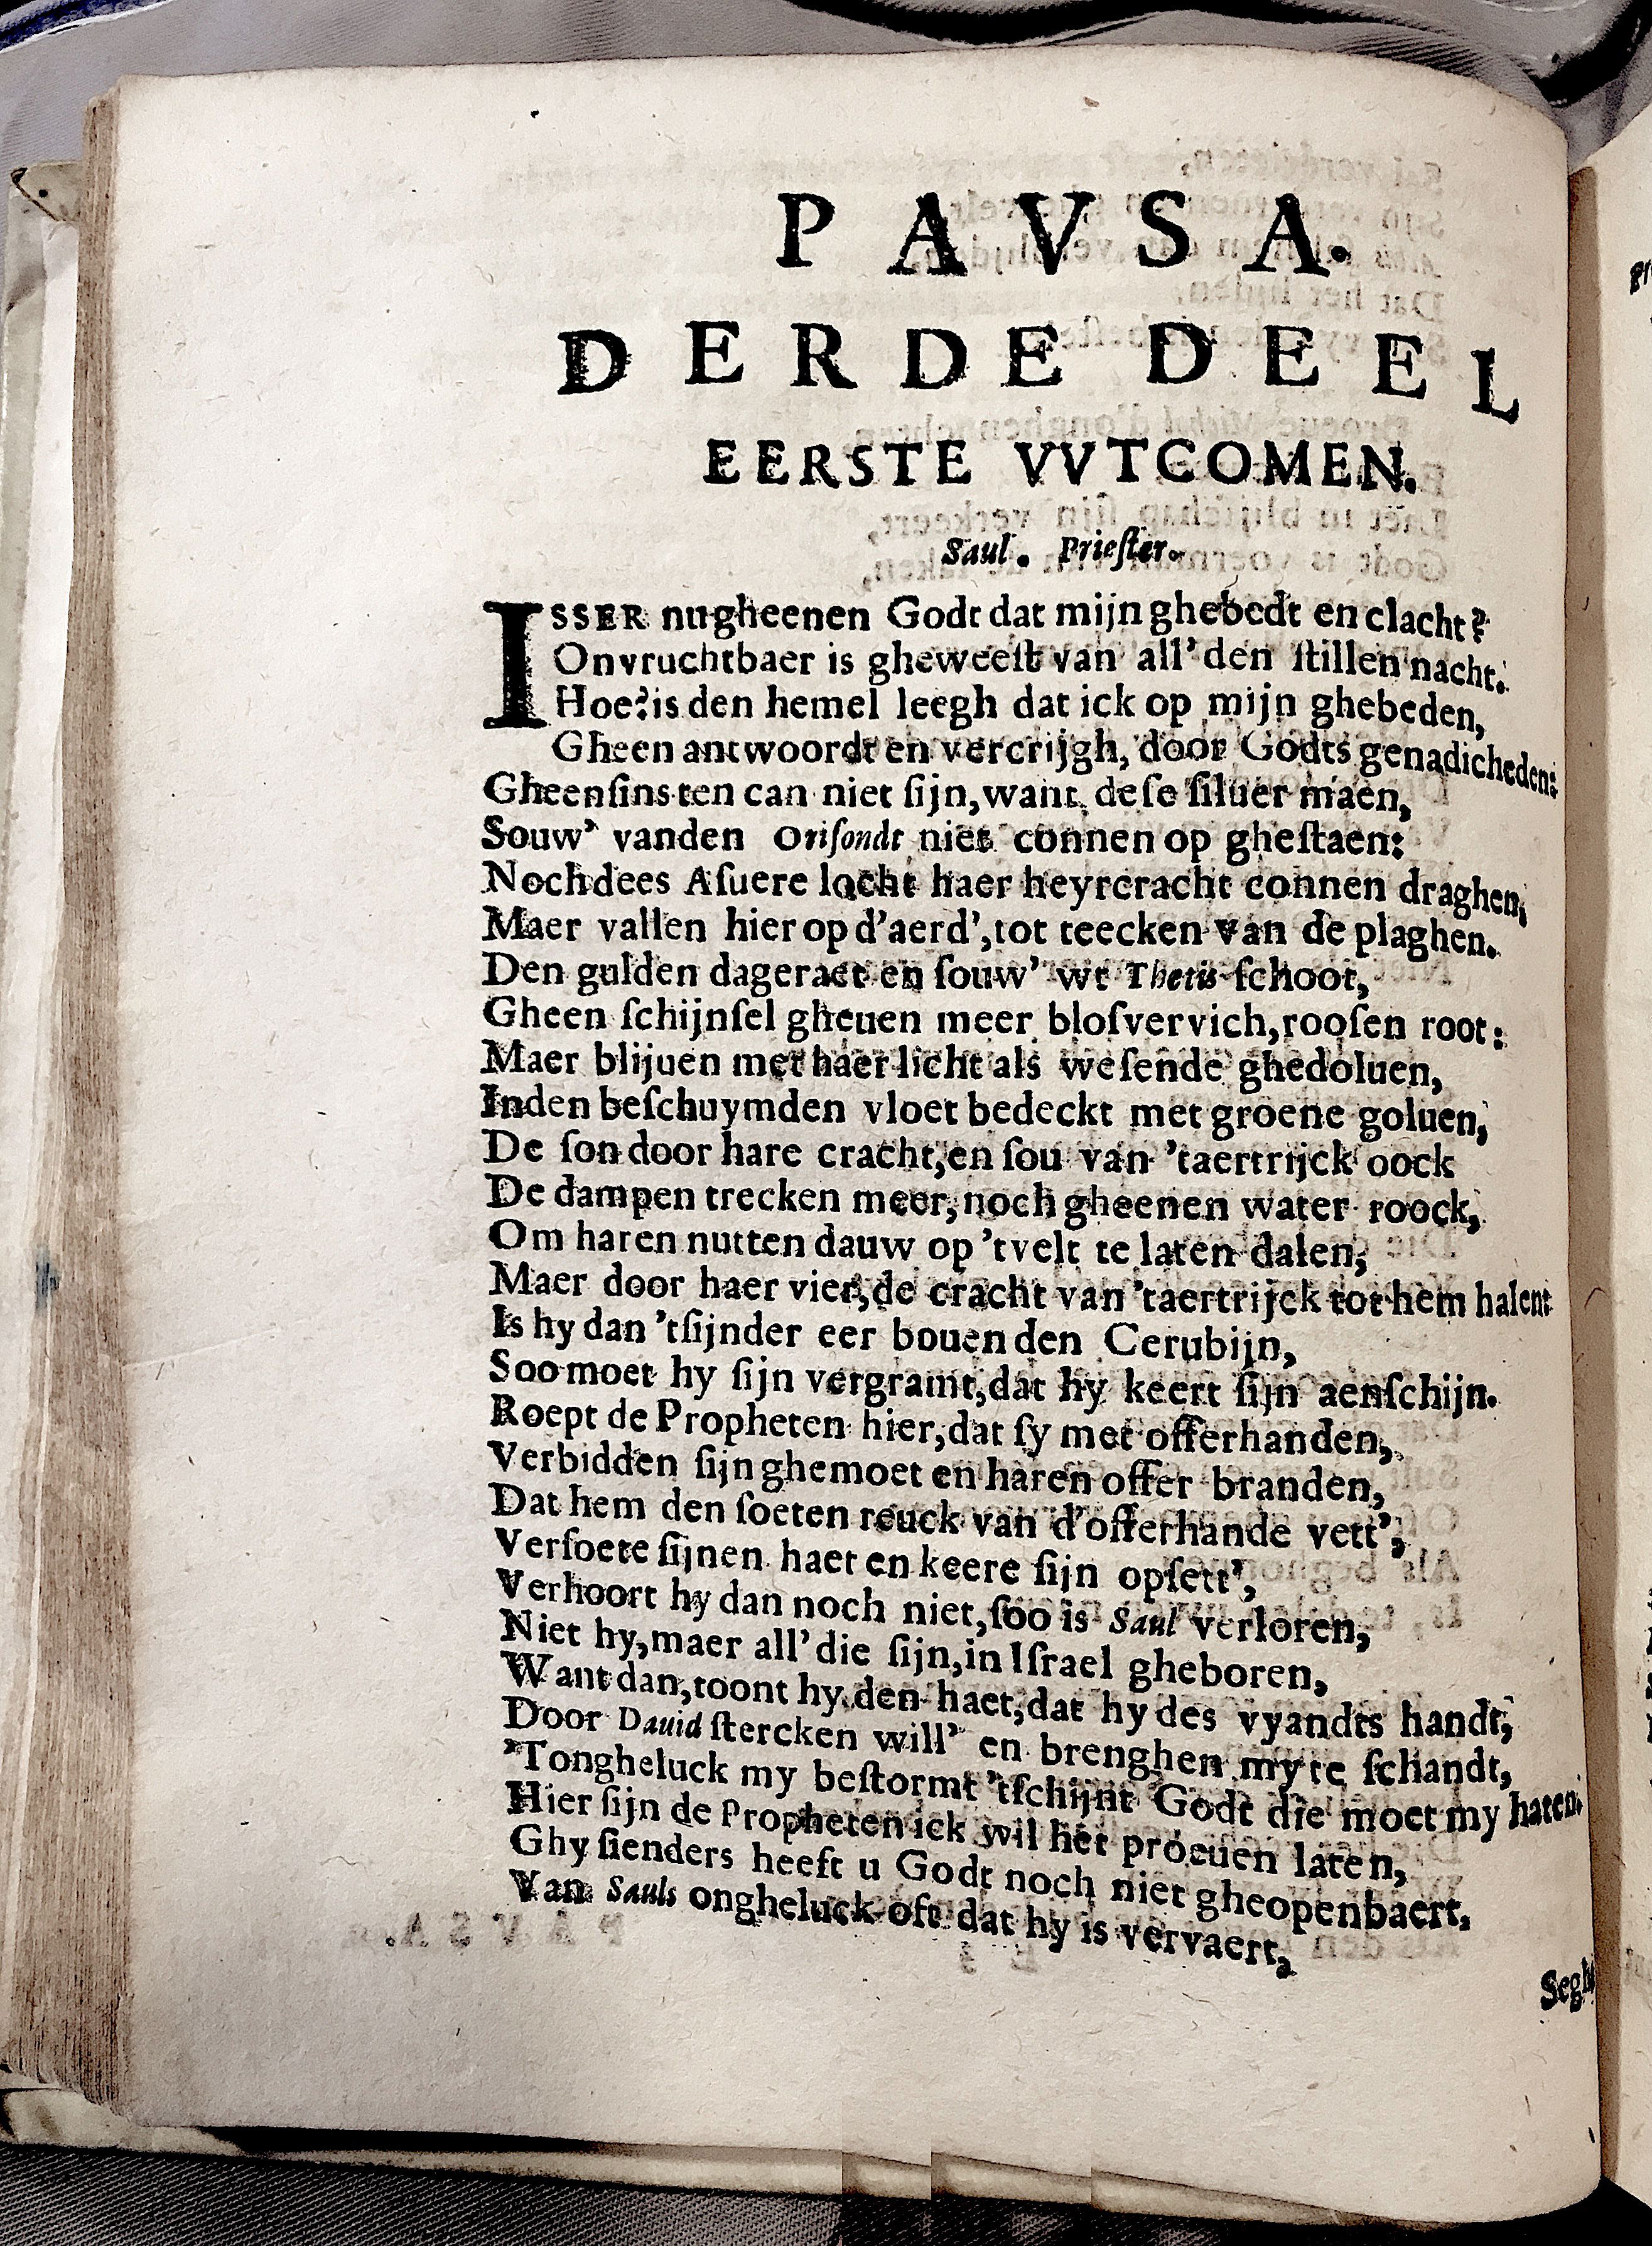 PAVSA.
DERDE DEEL
EERSTE VVTCOMEN.
Saul. Prieſter.
ISSER nu gheenen Godt dat mijn ghebedt en clacht?
Onvruchtbaer is gheweeſt van all' den ſtillen nacht.
Hoe? is den hemel leegh dat ick op mijn ghebeden,
Gheen antwoordt en vercrijgh, door Godts genadicheden:
Gheenſins ten can niet ſijn, want deſe ſiluer maen,
Souw' vanden Oriſondt niet connen op gheſtaen:
Noch dees Aſuere locht haer heyrcracht connen draghen,
Maer vallen hier op d'aerd', tot teecken van de plaghen.
Den gulden dageraet en ſouw' wt Thetis ſchoot,
Gheen ſchijnſel gheuen meer bloſvervich, rooſen root:
Maer blijuen met haer licht als weſende ghedoluen,
Inden beſchuymden vloet bedeckt met groene goluen,
De ſon door hare cracht, en ſou van 'taertrijck oock
De dampen trecken meer, noch gheenen water roock,
Om haren nutten dauw op 'tvelt te laten dalen,
Maer door haer vier, de cracht van 'taertrijck tot hem halen:
Is hy dan 'tſijnder eer bouen den Cerubijn,
Soo moet hy ſijn vergramt, dat hy keert ſijn aenſchijn.
Roept de Propheten hier, dat ſy met offerhanden,
Verbidden ſijn ghemoet en haren offer branden,
Dat hem den ſoeten reuck van d'offerhande vett',
Verſoete ſijnen haet en keere ſijn opſett',
Verhoort hy dan noch niet, ſoo is Saul verloren,
Niet hy, maer all' die ſijn, in Iſrael gheboren,
Want dan, toont hy den haet, dat hy des vyandts handt,
Door Dauid ſtercken will' en brenghen my te ſchandt,
'Tongheluck my beſtormt 'tſchijnt Godt die moet my haten.
Hier ſijn de Propheten ick wil het proeuen laten,
Ghy ſienders heeft u Godt noch niet gheopenbaert,
Van Sauls ongheluck oft dat hy is vervaert,